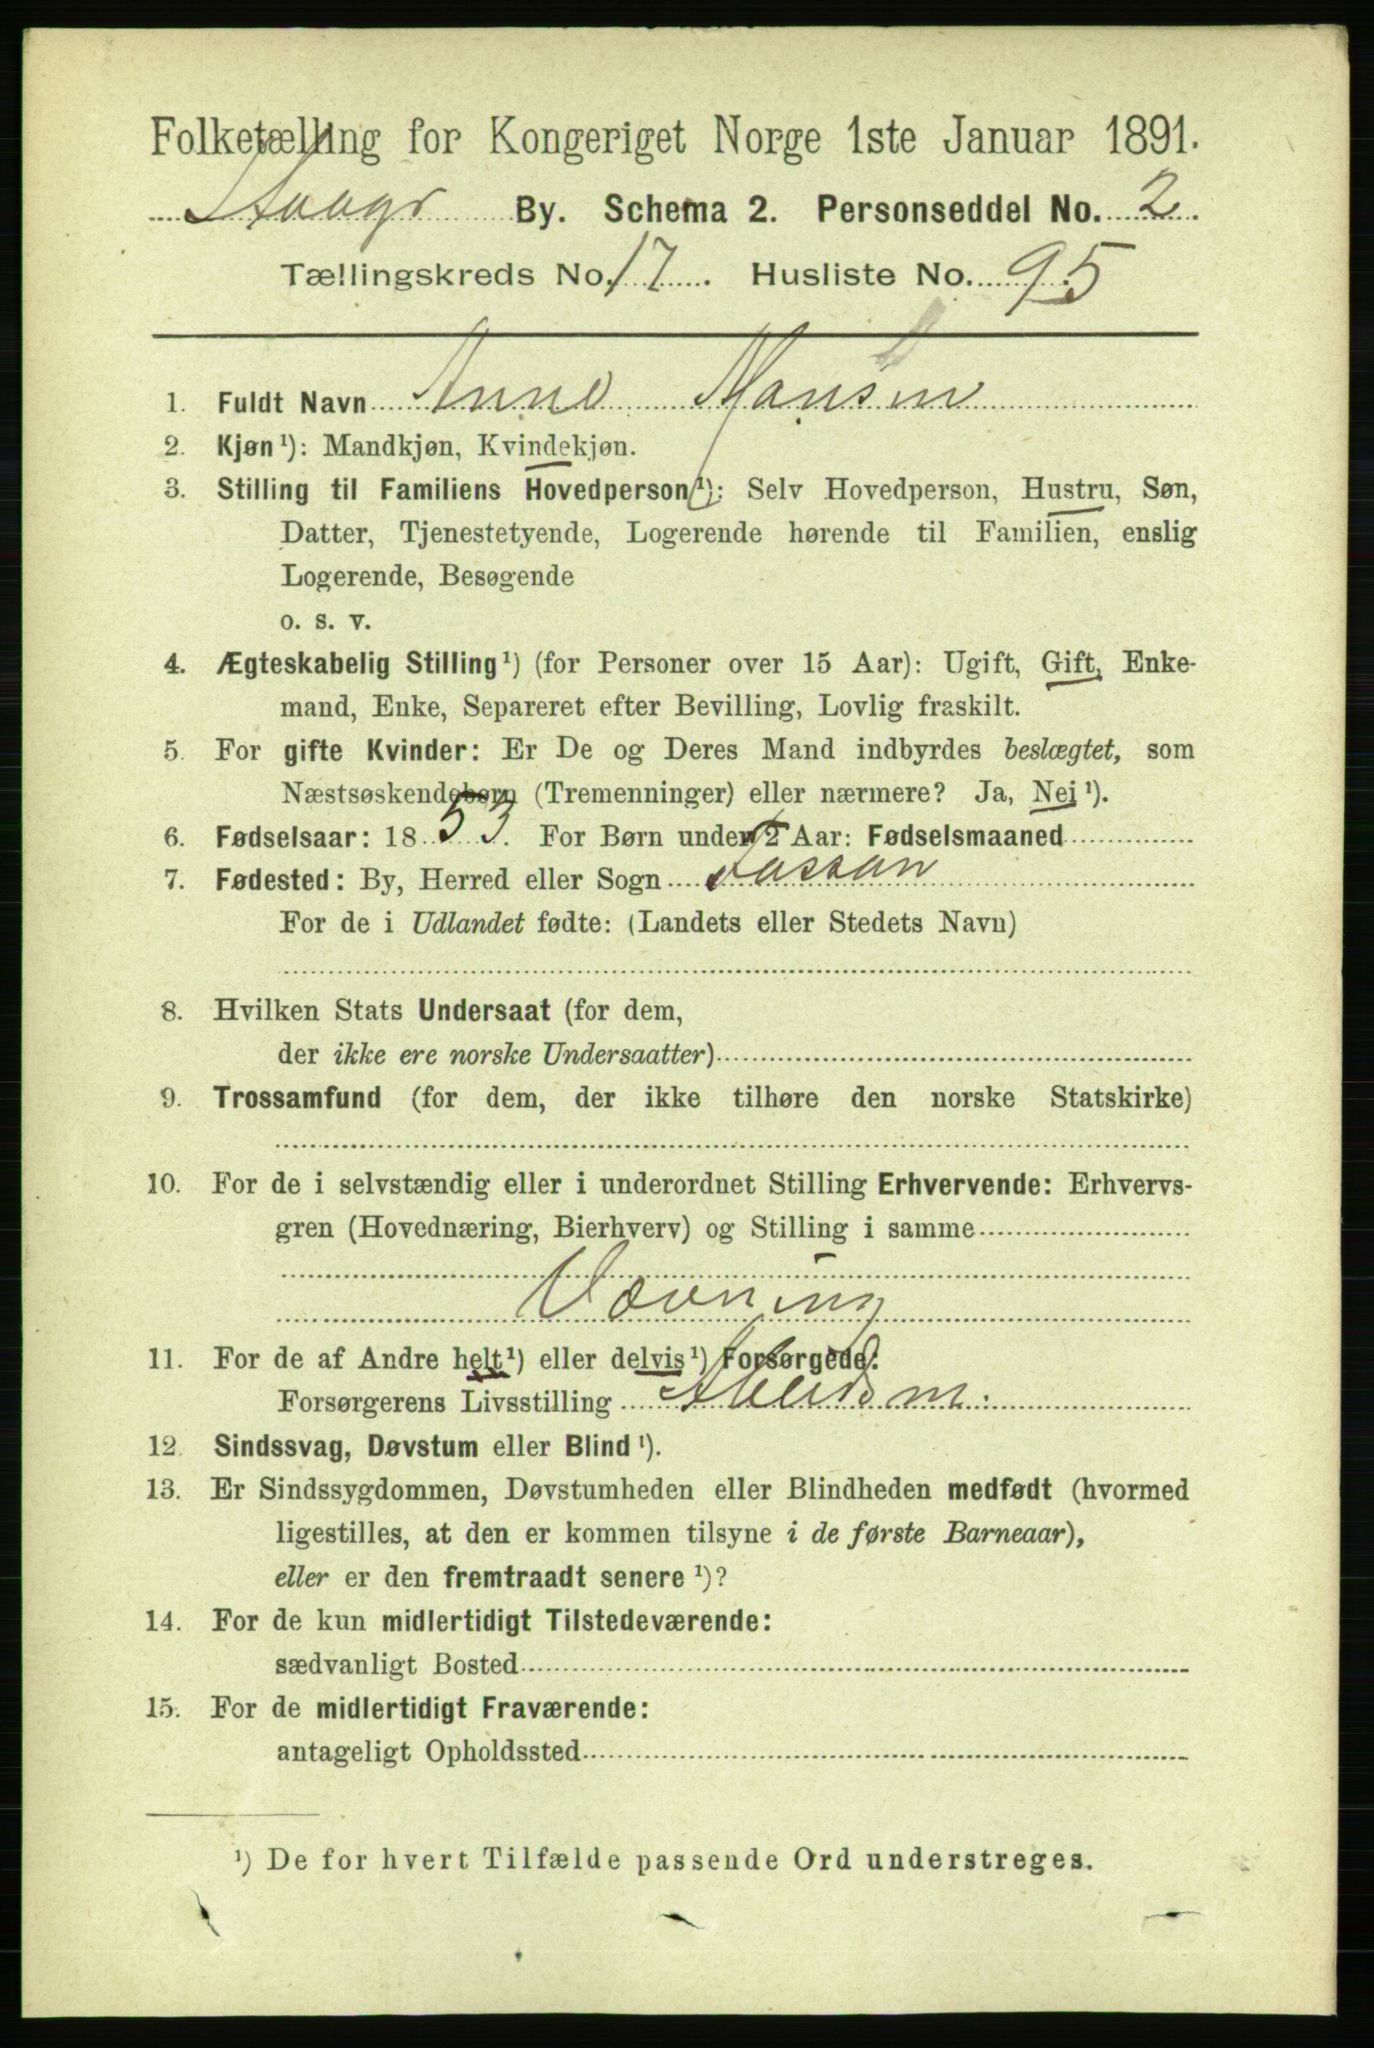 Folketælling for Kongeriget Norge 1ste Januar 1891.
By. Schema 2. Personseddel No. 2.
Tællingskreds No. 17. Husliste No. 95
1. Fuldt Navn Anne Hansen
2. Kjøn¹): Mandkjøn, Kvindekjøn.
3. Stilling til Familiens Hovedperson¹): Selv Hovedperson, Hustru, Søn,
Datter, Tjenestetyende, Logerende hørende til Familien, enslig
Logerende, Besøgende
o. s. v.
4. Ægteskabelig Stilling¹) (for Personer over 15 Aar): Ugift, Gift, Enke-
mand, Enke, Separeret efter Bevilling, Lovlig fraskilt.
5. For gifte Kvinder: Er De og Deres Mand indbyrdes beslægtet, som
Næstsøskendebørn (Tremenninger) eller nærmere? Ja, Nei¹).
6. Fødselsaar: 1853. For Børn under 2 Aar: Fødselsmaaned
7. Fødested: By, Herred eller Sogn Fossan
For de i Udlandet fødte: (Landets eller Stedets Navn)
8. Hvilken Stats Undersaat (for dem,
der ikke ere norske Undersaatter)
9. Trossamfund (for dem, der ikke tilhøre den norske Statskirke)
10. For de i selvstændig eller i underordnet Stilling Erhvervende: Erhvervs-
gren (Hovednæring, Bierhverv) og Stilling i samme
Vævning
11. For de af Andre helt¹) eller delvis¹) Forsørgede:
Forsørgerens Livsstilling
12. Sindssvag, Døvstum eller Blind¹).
13. Er Sindssygdommen, Døvstumheden eller Blindheden medfødt (hvormed
ligestilles, at den er kommen tilsyne i de første Barneaar),
eller er den fremtraadt senere¹)?
14. For de kun midlertidigt Tilstedeværende:
sædvanligt Bosted
15. For de midlertidigt Fraværende:
antageligt Opholdssted
¹) De for hvert Tilfælde passende Ord understreges.